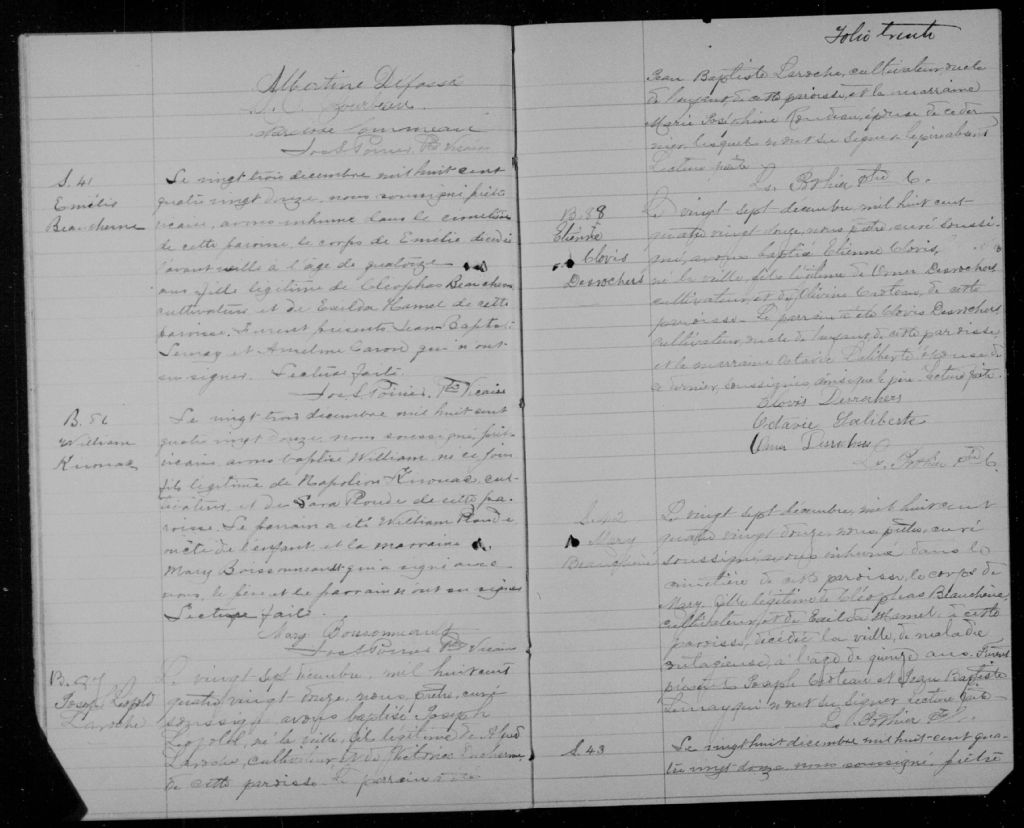 Albertine Defossé
Jos L Poirier Ptre Vicaire
S. 41
Emélie
Beauchesne
Le vingt trois decembre mil huit cent
quatre vingt douze, nous soussigné, prêt.
vicaire, avons inhumé dans le cimetière
de cette paroisse, le corps de Emélie décédée
l'avant veille à l'âge de quatorze
ans fille légitime de Cléophas Beauchesne
cultivateur et de Exilda Hamel de cette
paroisse. Furent présents Jean-Bapte
Lemay et Anselme Caron qui n'ont
su signer. Lecture faite.
Jos L Poirier, Ptre Vicaire
B. 86
William
Kirouac
Le vingt trois decembre mil huit cent
quatre vingt douze nous soussigné, prêt.
vicaire, avons baptisé William, né ce jour
fils légitime de Napoléon Kirouac, cul-
tivateur, et de Sara Plourde de cette pa-
roisse. Le parrain a été William Plourde
oncle de l'enfant et la marraine
Mary Boissonneault qui a signé avec
nous, le père et le parrain n'ont su signer
Lecture faite.
Mary Boissonneault
Jos L Poirier Ptre Vicaire
B. 87
Joseph Léopold
Laroche
Le vingt sept décembre, mil huit cent
quatre vingt douze, nous, prêtre, curé
soussigné avons baptisé Joseph
Léopold, né la veille, fils légitime de
Laroche, cultivateur, et de Victoria Ducharme
de cette paroisse. Le parrain a été
Folio trente
Jean Baptiste Laroche, cultivateur, oncle
de l'enfant, de cette paroisse, et la marraine
Marie Joséphine Rondeau, épouse de ce der-
nier, lesquels n'ont su signer
Lecture faite
Ls. Bothier Ptre C.
B. 88
Etienne
Clovis
Desrochers
Le vingt sept décembre, mil huit cent
quatre vingt douze, nous, prêtre, curé soussi-
gné, avons baptisé Etienne Clovis,
né la veille, fils légitime de Omer Desrochers
cultivateur, et de Olivine Croteau, de cette
paroisse. Le parrain a été Clovis Desrochers
cultivateur, oncle de l'enfant, de cette paroisse,
et la marraine Octavie Laliberté épouse de
ce dernier, soussignés ainsi que le père. Lecture faite.
Clovis Desrochers
Octavie Laliberté
Omer Desrochers
Ls. Bothier Ptre C.
S. 42
Mary
Beauchesne
Le vingt sept décembre, mil huit cent
quatre vingt douze, nous, prêtre, curé
soussigné, avons inhumé dans le
cimetière de cette paroisse, le corps de
Mary, fille légitime de Cléophas Beauchesne,
cultivateur, et de Exilda Hamel, de cette
paroisse, décédée la veille, de maladie
contagieuse, à l'âge de quinze ans. Furent
présents Joseph Croteau et Jean Baptiste
Lemay qui n'ont su signer lecture faite
Ls. Bothier Ptre C.
S. 43
Le vingt huit décembre mil huit-cent qua-
tre vingt douze, nous soussigné, prêtre